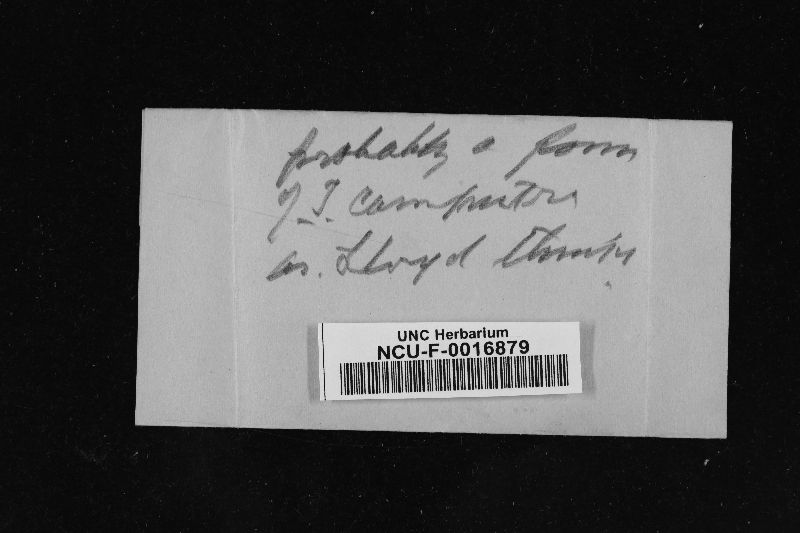 probably a form
of T. campestre
as Lloyd thinks.
UNC Herbarium
NCU-F-0016879